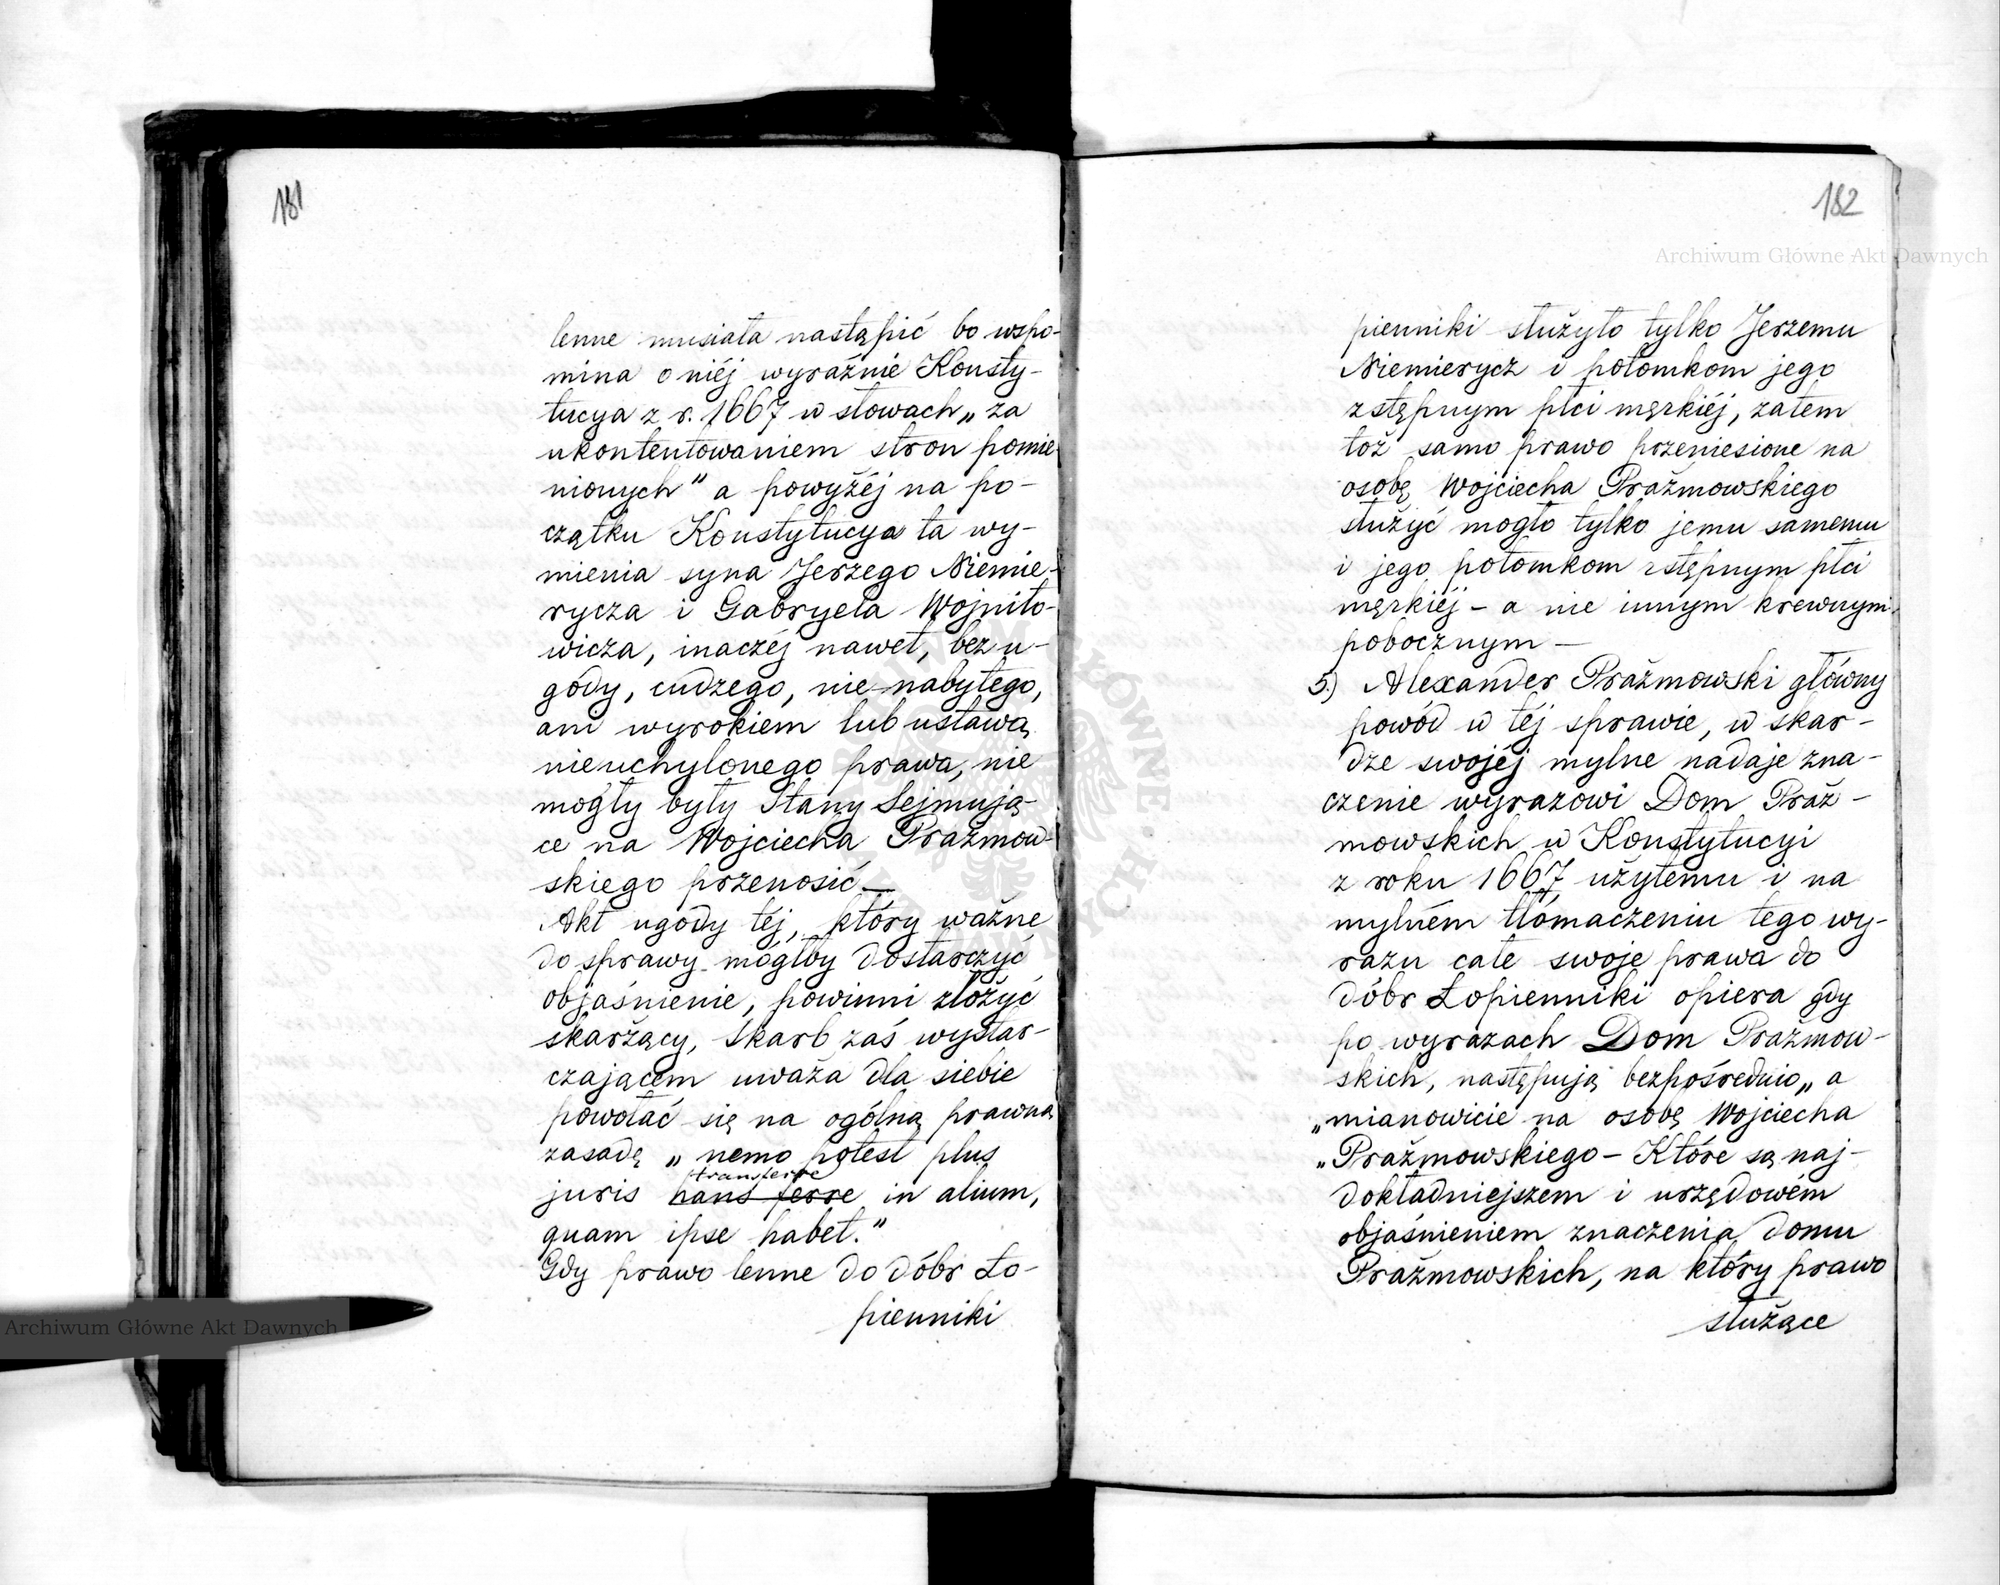 181
lenne musiała nastąpić bo wspo-
mina o niéj wyraźnie Konsty-
tucya z r. 1667 w słowach „za
ukontentowaniem stron pomie-
nionych" a powyżéj na po-
czątku Konstytucya ta wy-
mienia syna Jerzego Niemie-
rycza i Gabryela Wojniło-
wicza, inaczéj nawet, bez u-
gody, cudzego, nie nabytego,
ani wyrokiem lub ustawą
nieuchylonego prawa, nie
mogły były Stany Sejmują-
ce na Wojciecha Prażmow-
skiego przenosić —
Akt ugody téj, który ważne
do sprawy mógłby dostarczyć
objaśnienie, powinni złożyć
skarżący, Skarb zaś wystar-
czającem uważa dla siebie
powołać się na ogólną prawną
zasadę „nemo potest plus
transferre
juris hans ferre in alium,
quam ipse habet."
Gdy prawo lenne do dóbr Ło-
pienniki
Archiwum Główne Akt Dawnych
182
Archiwum Główne Akt Dawnych
pienniki służyło tylko Jerzemu
Niemierycz i potomkom jego
zstępnym płci męzkiéj, zatem
toż samo prawo przeniesione na
osobę Wojciecha Prażmowskiego
służyć mogło tylko jemu samemu
i jego potomkom zstępnym płci
męzkiéj – a nie innym krewnym
pobocznym —
5) Alexander Prażmowski główny
powód w téj sprawie, w skar-
dze swojéj mylne nadaje zna-
czenie wyrazowi Dom Praż-
mowskich w Konstytucyi
z roku 1667 użytemu i na
mylném tłómaczeniu tego wy-
razu całe swoje prawa do
dóbr Łopienniki opiera gdy
po wyrazach Dom Prażmow-
skich, następują bezpośrednio „a
„mianowicie na osobę Wojciecha
„Prażmowskiego – Które są naj-
dokładniejszem i urzędowém
objaśnieniem znaczenia domu
Prażmowskich, na który prawo
służące